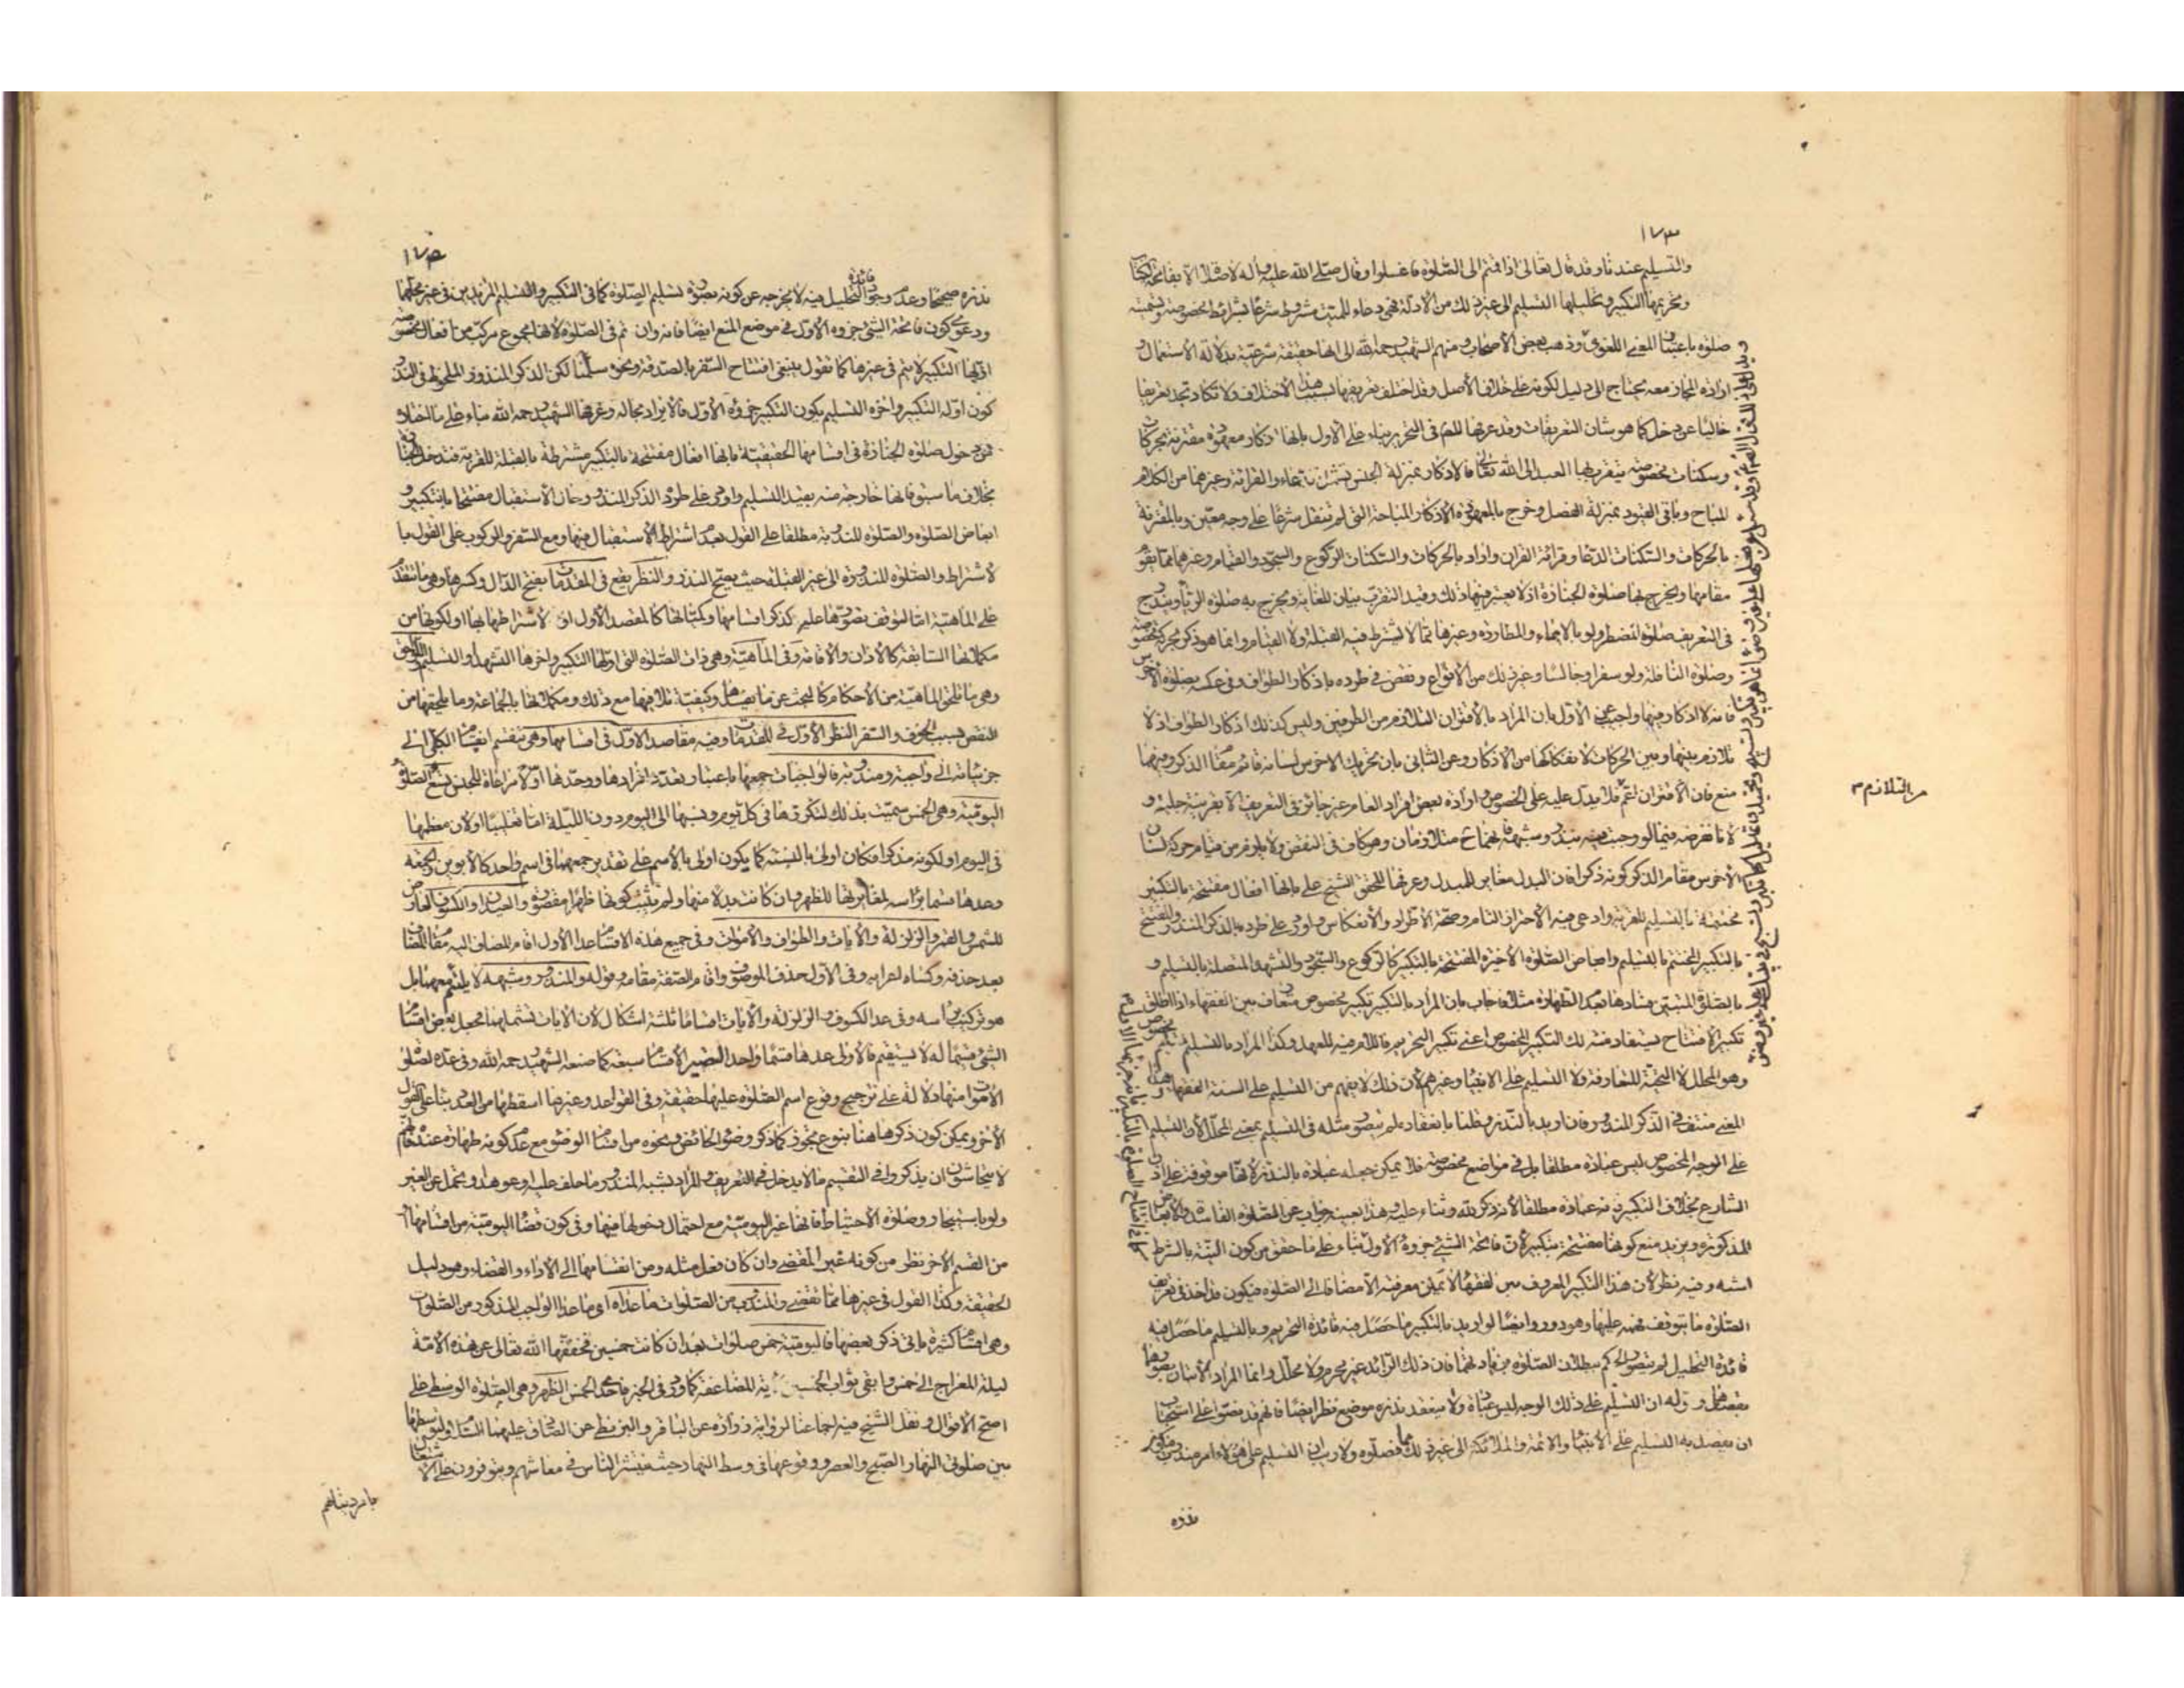 ١٧٣
والتسليم عندنا وقد قال تعالى اذا قمتم الى الصلوة فاغسلوا وقال صلى الله عليه وآله لا صلوة الا بفاتحة الكتاب
وتحريمها التكبير وتحليلها التسليم الى غير ذلك من الأدلة فهى دعاء للميت مشروط شرعا بشرائط مخصوصة وتسميته
صلوة باعتبار المعنى اللغوى وذهب بعض الأصحاب ومنهم الشهيد رحمه الله الى انها حقيقة شرعية بدلالة الاستعمال و
ارادة المجاز معه يحتاج الى دليل لكونه على خلاف الأصل وقد اختلف تعريفها بسبب هذا الاختلاف ولا تكاد تجد تعريفا
خاليا عن دخل كما هو شان التعريفات وقد عرفها المصنف فى التحرير بناء على الاول بانها اذكار معهودة مقترنة بحركات
وسكنات مخصوصة يتقرب بها العبد الى الله تعالى فالاذكار بمنزلة الجنس يشمل الدعاء والقرائة وغيرهما من الكلام
المباح وباقى القيود بمنزلة الفصل وخرج بالمعهودة الأذكار المباحة التى لم تنقل شرعا على وجه معين وبالمقترنة
بالحركات والسكنات الدعا وقرائة القران واراد بالحركات والسكنات الركوع والسجود والقيام وغيرهما مما يقوم
مقامها ويخرج بها صلوة الجنازة اذ لا يعتبر فيها ذلك وقيد التقرب بيان للغاية ويخرج به صلوة الرياء ويندرج
فى التعريف صلوة المضطر ولو بالايماء والمطاردة وغيرها مما لا يشترط فيه القبلة ولا القيام وانما هو ذكر بحركة مخصوصة
وصلوة النافلة ولو سفرا وجالسا وغير ذلك من الأنواع ونقض فى طرده باذكار الطواف وفى عكسه بصلوة الأخرس
فانه لا اذكار فيها واجيب عن الأول بان المراد بالاقتران التلازم من الطرفين وليس كذلك اذكار الطواف اذ لا
تلازم بينها وبين الحركات لانفكاكها من الاذكار وعن الثانى بان تحريك الاخرس لسانه قائم مقام الذكر وفيهما
منع فان الأقتران اعم فلا يدل عليه على الخصوص وارادة بعض افراد العام غير جائز فى التعريف الا بقرينة جلية و
لانا نفرضه فيما لو وجب فيه بنذر وشبهه فيحتاج مثلا زمان وهو كاف فى النقض ولا يلزم من قيام حركة لسان
الأخرس مقام الذكر كونه ذكرا فان البدل مغاير للمبدل وعرفها المحقق الشيخ على بانها افعال مفتتحة بالتكبير
مختتمة بالتسليم للقربة وادعى فيه الأحتراز التام وصحة الاطراد والأنعكاس واورد على طرده بالذكر المنذور المفتتح
بالتكبير المختتم بالتسليم وابعاض الصلوة الأخيرة المفتتحة بالتكبير كالركوع والسجود والتشهد المتصلة بالتسليم و
بالصلوة المتبين فسادها بعد الطهارة مثلا فاجاب بان المراد بالتكبير تكبير مخصوص متعارف بين الفقهاء اذا اطلق
تكبير الأفتتاح فيستفاد منه لك التكبير المخصوص اعنى تكبير التحريم فاللام فيه للعهد وكذا المراد بالتسليم تسليم مخصوص
وهو المحلل لا التحية المتعارفة ولا التسليم على الانبياء وغيرهم لأن ذلك لا يفهم من التسليم على السنة الفقهاء وهذا
المعنى منتف فى الذكر المنذور فان اريد بالنذر وقلنا بانعقاده لم يتصور مثله فى التسليم بمعنى المحلل لأن التسليم
على الوجه المخصوص ليس عبادة مطلقا بل فى مواضع مخصوصة فلا يمكن جعله عبادة بالنذر لانها موقوفة على اذن
الشارع بخلاف التكبير فانه عبادة مطلقا لأنه ذكر لله وثناء عليه وهذا بعينه جواب عن الصلوة الفاسدة والأبعاض
المذكورة ويزيد منع كونها مفتتحة بتكبير لأن فاتحة الشىء جزؤه الأول بناء على ما حقق من كون النية بالشرط
اشبه وفيه نظر لأن هذا التكبير المعروف بين الفقهاء لا يمكن معرفته الا مضافا الى الصلوة فيكون قد اخذ فى تعريف
الصلوة ما يتوقف فهمه عليها وهو دور وايضا لو اريد بالتكبير ما حصل فيه فائدة التحريم وبالتسليم ما حصل فيه
فائدة التحليل لم يتصور الحكم ببطلان الصلوة بزيادتهما فان ذلك الزائد غير محرم ولا محلل وانما المراد الأتيان بصورتهما
بقصدهما وقوله ان التسليم على ذلك الوجه ليس عبادة ولا ينعقد نذره موضع نظر ايضا فانهم قد نصوا على استحباب
ان يقصد به التسليم على الأنبياء والائمة والملائكة الى غير ذلك مما فصلوه ولا ريب ان التسليم على هؤلاء امر مندوب فيكون
نذره
من التلازم ٣
١٧٤
نذره صحيحا وعدم وجود فائدة التحليل فيه لا يخرجه عن كونه بصورة تسليم الصلوة كما فى التكبير والتسليم المزيدين فى غير محلهما
ودعوى كون فاتحة الشىء جزوه الأول فى موضع المنع ايضا فانه وان تم فى الصلوة لانها مجموع مركب من افعال مخصوصة
اولها التكبير لا يتم فى غيرها كما تقول ينبغى افتتاح السفر بالصدقة ونحوه سلمنا لكن الذكر المنذور الملحوظ فى النذر
كون اوله التكبير واخره التسليم يكون التكبير جزوه الأول فالايراد بحاله وعرفها الشهيد رحمه الله بناء على ما اختاره
من دخول صلوة الجنازة فى اقسامها الحقيقية بانها افعال مفتتحة بالتكبير مشترطة بالقبلة للقربة فتدخل الجنازة
بخلاف ما سبق فانها خارجة منه بقيد التسليم واورد على طرده الذكر المنذور حال الاستقبال مفتتحا بالتكبير و
ابعاض الصلوة والصلوة المندوبة مطلقا على القول بعدم اشتراط الاستقبال فيها ومع السفر والركوب على القول با
لاشتراط والصلوة المنذورة الى غير القبلة حيث يصح النذر والنظر يقع فى المقدمات بفتح الدال وكسرها وهى ما تتقدم
على الماهية اما لتوقف تصورها عليه كذكر اقسامها وكمياتها كالمقصد الأول او لاشتراطها بها او لكونها من
مكملاتها السابقة كالأذان والأقامة وفى الماهية وهى ذات الصلوة التى اولها التكبير واخرها التشهد او التسليم واللواحق
وهى ما تلحق الماهية من الأحكام كالبحث عما يفسدها وكيفية تلافيها مع ذلك ومكملاتها بالجماعة وما يلحقها من
النقص بسبب الخوف والسفر النظر الأول فى المقدمات وفيه مقاصد الأول فى اقسامها وهى تنقسم انقسام الكلى الى
جزئياته الى واجبة ومندوبة فالواجبات جمعها باعتبار تعدد افرادها ووحدها اولا مراعاة للجنس تسع الصلوة
اليومية وهى الخمس سميت بذلك لتكررها فى كل يوم ونسبها الى اليوم دون الليلة اما تغليبا او لان معظمها
فى اليوم او لكونه مذكرا فكان اولى بالنسبة كما يكون اولى بالاسم على تقدير جمعهما فى اسم واحد كالأبوين والجمعة
وعدها قسما براسه لمغايرتها للظهر وان كانت بدلا منها ولم يثبت كونها ظهرا مقصورة والعيدان والكسوف العارض
للشمس والقمر والزلزلة والايات والطواف والأموات وفى جميع هذه الاقسام عدا الأول اقام المضاف اليه مقام المضاف
بعد حذفه وكساه اعرابه وفى الأول حذف الموصوف واقام الصفة مقامه وقوله والمنذور وشبهه لا يلتئم معهما بل
هو تركيب براسه وفى عد الكسوف والزلزلة والأيات اقساما ثلثة اشكال لأن الايات قسم لهما فجعل بعض اقسام
الشىء قسيما له لا يستقيم فالاولى عدها قسما واحدا لتصير الأقسام سبعة كما صنعه الشهيد رحمه الله وفى عده لصلوة
الأموات منها دلالة على ترجيح وقوع اسم الصلوة عليها حقيقة وفى القواعد وغيرها اسقطها من العدد بناء على القول
الأخر ويمكن كون ذكرها هنا بنوع تجوز كما ذكر وضوء الحائض ونحوه من اقسام الوضوء مع عدم كونه طهارة عنده فانهم
لا يتحاشون ان يذكروا فى التقسيم ما لا يدخل فى التعريف والمراد بشبه المنذور ما حلف عليه او عوهد وتحمل عن الغير
ولو باستيجار وصلوة الأحتياط فانها غير اليومية مع احتمال دخولها فيها وفى كون قضاء اليومية من اقسامها او
من القسم الأخر نظر من كونه غير المقضى وان كان فعل مثله ومن انقسامها الى الأداء والقضاء وهو دليل
الحقيقة وكذا القول فى غيرها مما تقضى والمندوب من الصلوات ما عداه اى ما عدا الواجب المذكور من الصلوات
وهى اقسام كثيرة ياتى ذكر بعضها فاليومية خمس صلوات بعد ان كانت خمسين فخففها الله تعالى عن هذه الأمة
ليلة المعراج الى خمس وابقى ثواب الخمسين للمضاعفة كما ورد فى الخبر فاحدى الخمس الظهر وهى الصلوة الوسطى على
اصح الأقوال ونقل الشيخ فيه اجماعنا لرواية زرارة عن الباقر والبزنطى عن الصادق عليهما السلام ولتوسطها
بين صلوتى النهار الصبح والعصر ووقوعها فى وسط النهار حيث ينتشر الناس فى معاشهم ويتوفرون على الاشتغال
بامر دنياهم